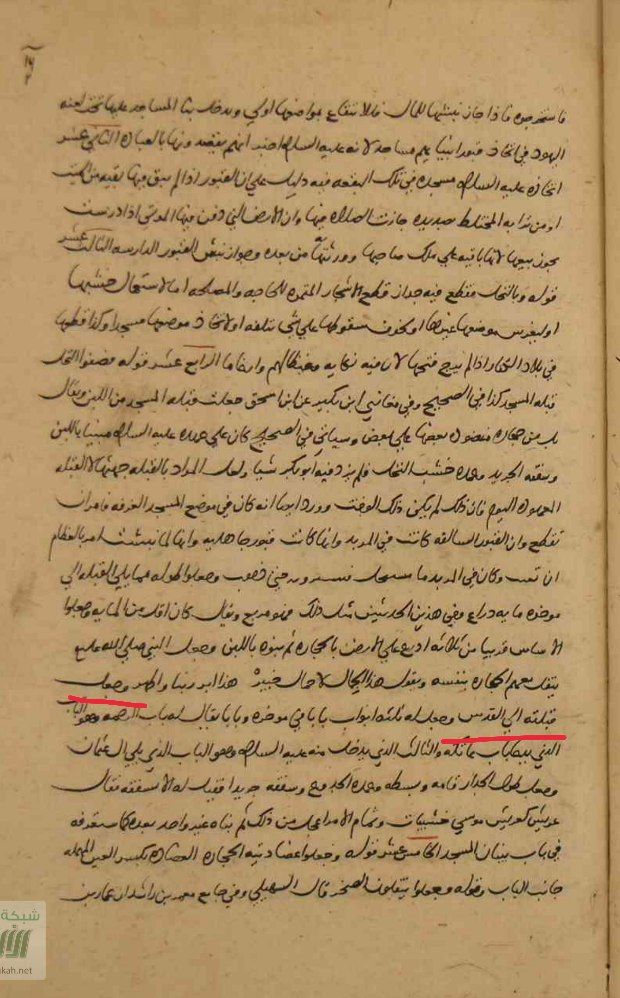 فاستخرجوه فاذا جاز نبشها للمال فالانتفاع بمواضعها اولي ويدخل بنا المساجد عليها تحت لعنه
اليهود في اتخاذ قبور انبيائهم مساجد لانه عليه السلام اخبر انهم يقصدونها بالعباده الثاني عشر
اتخاذه عليه السلام مسجده في تلك البقعه فيه دليل علي ان القبور اذا لم يبق فيها بقيه من الميت
او من ترابه المختلط بصديده جازت الصلاه فيها وان الارض التي دفن فيها الموتي اذا درست
يجوز بيعها لانها باقيه علي ملك صاحبها وورثته من بعده وجواز نبش القبور الدارسه الثالث عشر
قوله وبالنخل فقطع فيه جواز قطع الاشجار المثمره للحاجه والمصلحه اما لاستعمال خشبها
او ليغرس موضعها غيرها او لخوف سقوطها علي شي تتلفه او لاتخاذ موضعها مسجدا وكذا قطعها
في بلاد الكفار اذا لم يرج فتحها لان فيه نكايه وغيظا لهم وارغاما الرابع عشر قوله فصفوا النخل
قبله المسجد كذا في الصحيح وفي مغازي ابن بكير عن ابن اسحق جعلت قبله المسجد من اللبن ويقال
بل من حجاره منضوده بعضها علي بعض وسياتي في الصحيح كان علي عهده عليه السلام مبنيا باللبن
وسقفه الجريد وعمده خشب النخل فلم يزد فيه ابو بكر شيا ولعل المراد بالقبله جهتها لا القبله
المعموله اليوم فان ذلك لم يكن ذلك الوقت وورد ايضا انه كان في موضع المسجد الغرقد فامر ان
تقطع وان القبور السالفه كانت في المربد وانها كانت قبور جاهليه وانها لما نبشت امر بالعظام
ان تغيب وكان في المربد ما مستنجل فسيروه حتي ذهب وجعلوا طوله مما يلي القبله الي
موخره مايه ذراع وفي هذين الجانبين مثل ذلك فهو مربع ويقال كان اقل من المايه وجعلوا
الاساس قريبا من ثلاثه اذرع علي الارض بالحجاره ثم بنوه باللبن وجعل النبي صلي الله عليه
ينقل معهم الحجاره بنفسه ويقول هذا الحمال لا حمال خيبر هذا ابر ربنا واطهر وجعل
قبلته الي القدس وجعل له ثلثه ابواب بابا في موخره وبابا يقال له باب الرحمه وهو الباب
الذي يدعي باب عاتكه والثالث الذي يدخل منه عليه السلام وهو الباب الذي يلي ال عثمان
وجعل طول الجدار قامه وبسطه وعمده الجذوع وسقفه جريدا فقيل له الا نسقفه فقال
عريش كعريش موسي خشيبات وثمام الامر اعجل من ذلك ثم بناه غير واحد بعده كما ستعرفه
في باب بنيان المسجد الخامس عشر قوله وجعلوا عضادتيه الحجاره العضاده بكسر العين المهمله
جانب الباب وقوله وجعلوا ينقلون الصخر قال السهيلي وفي جامع معمر بن راشد ان عمار بن
شبكة